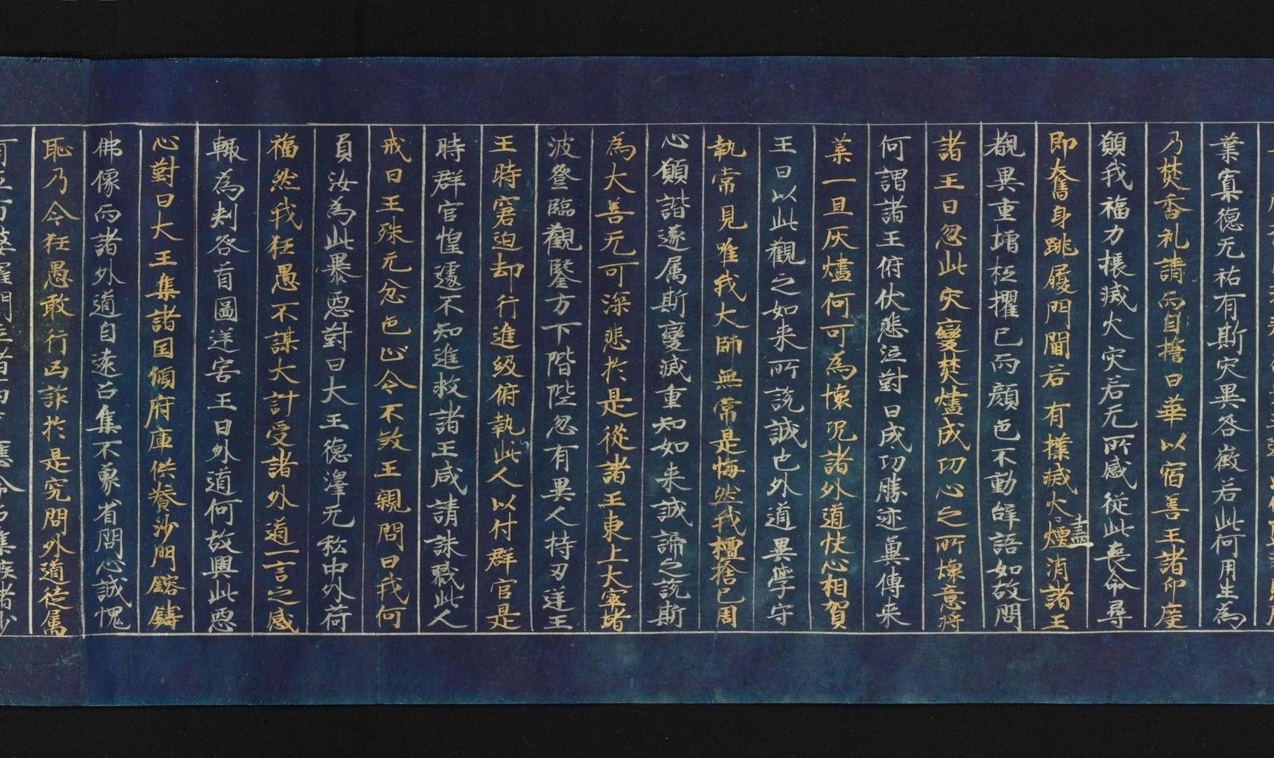 葉寡德无祐有斯灾異咎徵若此何用生為
乃焚香礼請而自擔曰華以宿善王諸卬度
願我福力攘滅火灾若无所感從此喪命尋
即奮身跳履門閫若有撲滅火盡煙消諸王
覩異重增祗懼已而顏色不動辭語如故問
諸王曰忽此灾變焚燼成功心之所懷意將
何謂諸王俯伏悲泣對曰成功勝迹冀傳来
葉一旦灰燼何可為懷况諸外道快心相賀
王曰以此觀之如来所説誠也外道異學守
執常見唯我大師無常是悔然我檀捨已周
心願諧遂属斯變滅重知如来誠諦之説斯
為大善无可深悲於是從諸王東上大窣堵
波登臨觀覽方下階陛忽有異人持刃逆王
王時窘迫却行進級俯執此人以付群官是
時群官惶遽不知進救諸王咸請誅戮此人
戒日王殊无忿色止令不煞王親問曰我何
負汝為此暴惡對曰大王德澤无私中外荷
福然我狂愚不謀大計受諸外道一言之惑
輙為刾客首圖逆害王曰外道何故興此惡
心對曰大王集諸国傾府庫供養沙門鎔鑄
佛像而諸外道自遠召集不蒙省問心誠愧
恥乃令狂愚敢行凶詐於是究問外道徒属